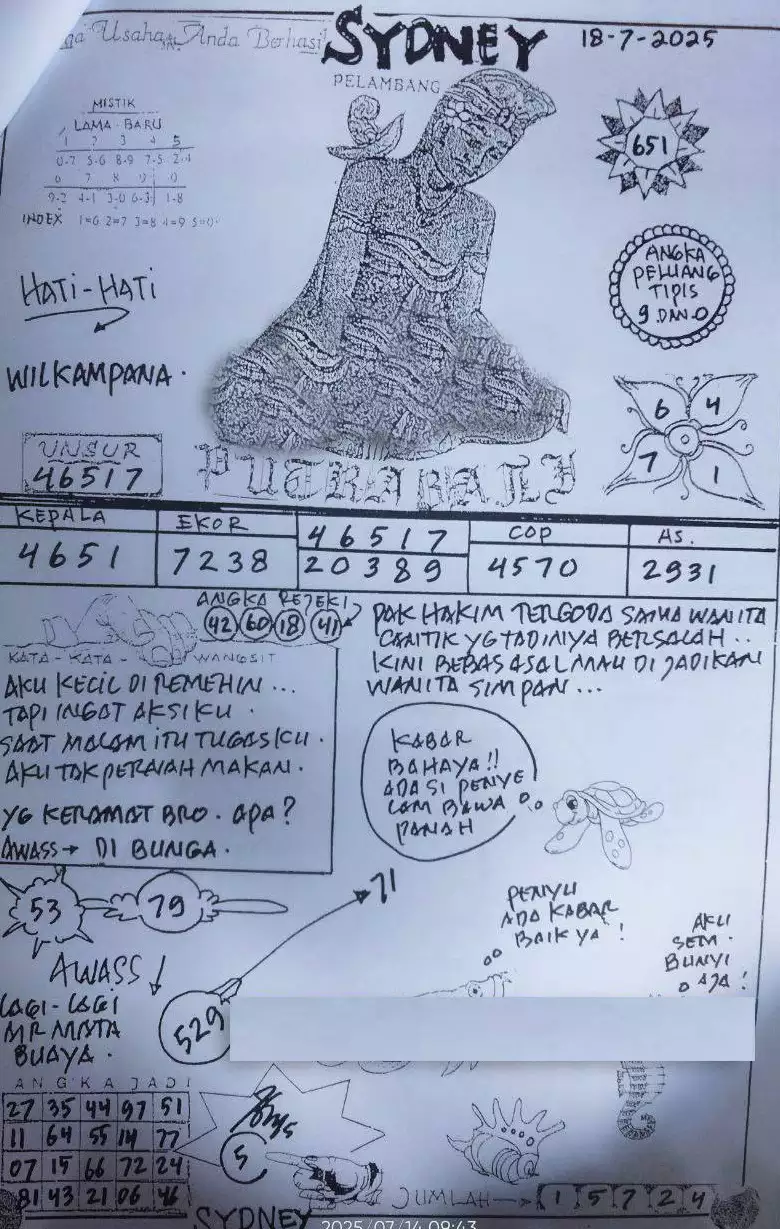 Usaha Anda Berhasil
SYDNEY
18-7-2025
PELAMBANG
MISTIK
LAMA - BARU
1 2 3 4 5
0-7 5-6 8-9 7-5 2-4
6 7 8 9 0
9-2 4-1 3-0 6-3 1-8
INDEX 1=6 2=7 3=8 4=9 5=0
651
HATI-HATI
ANGKA
PELUANG
TIPIS
9 DAN 0
WILKAMPANA.
6 4
7 1
UNSUR
46517
PUTRA BALI
KEPALA
4651
EKOR
7238
46517
20389
COP
4570
AS.
2931
ANGKA REJEKI
42 60 18 41
KATA - KATA - WANGSIT
AKU KECIL DI REMEHIN ...
TAPI INGAT AKSIKU.
SAAT MALAM ITU TUGASKU.
AKU TAK PERNAH MAKAN.
YG KERAMAT BRO. APA?
AWASS → DI BUNGA.
PAK HAKIM TERGODA SAMA WANITA
CANTIK YG TADINYA BERSALAH ..
KINI BEBAS ASAL MAU DI JADIKAN
WANITA SIMPAN ...
KABAR
BAHAYA!!
ADA SI PENYE
LAM BAWA
PANAH
53
79
71
PENYU
ADA KABAR
BAIK YA!
AKU
SEM.
BUNYI
AJA!
AWASS!
LAGI-LAGI
MR MATA
BUAYA.
529
ANGKA JADI
27 35 44 97 51
11 64 55 14 77
07 15 66 72 24
81 43 21 06 46
5
JUMLAH → 1 5 7 2 4
SYDNEY
2025/07/14 09:43